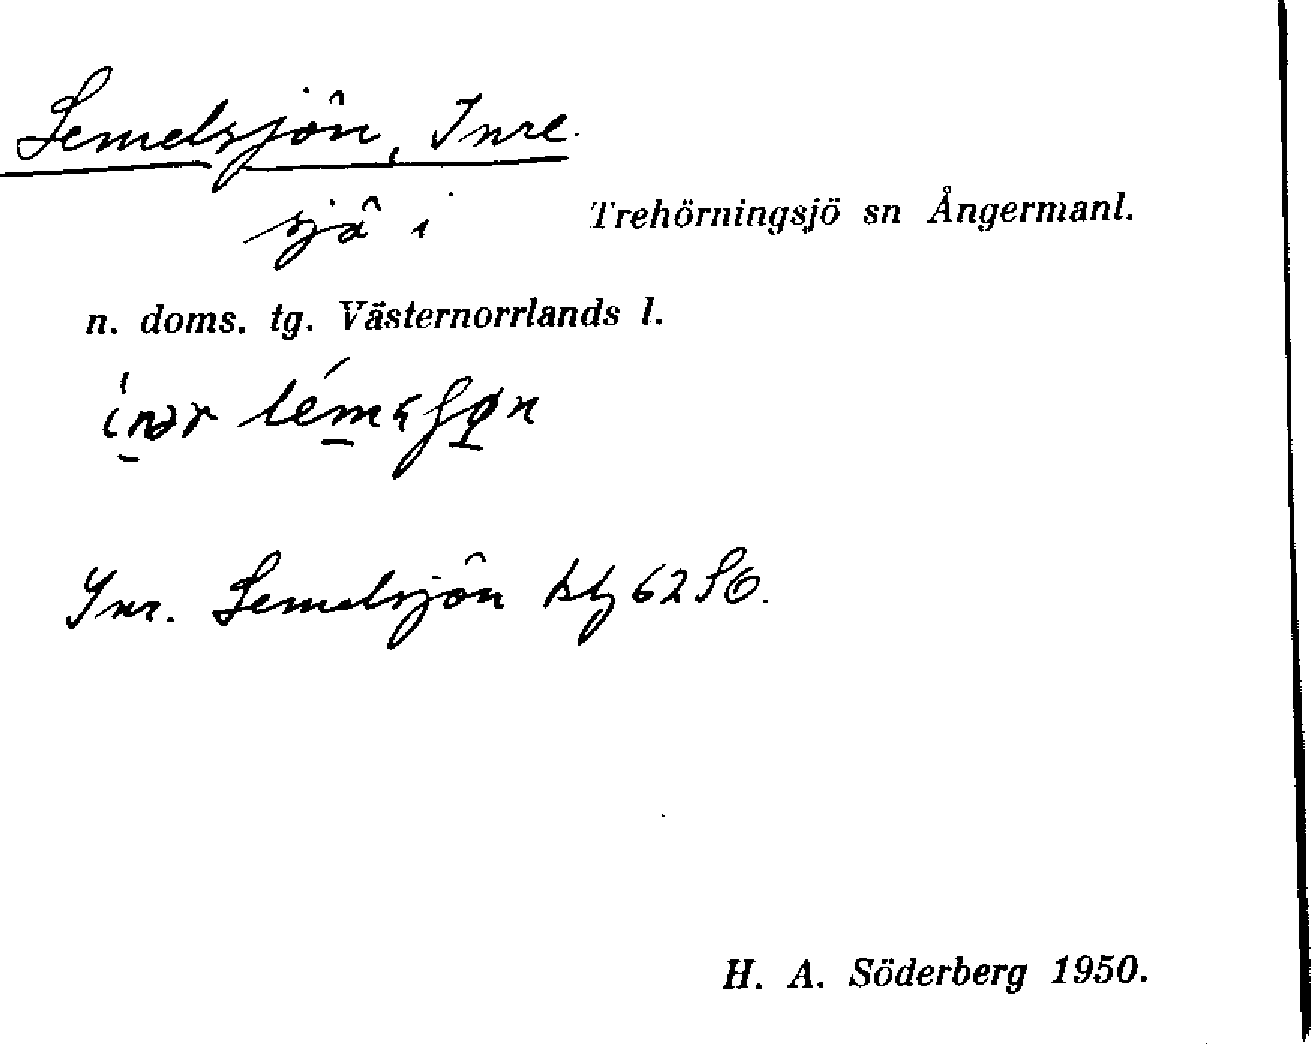 Lemelsjön, Inre.
sjö i Trehörningsjö sn Ångermanl.
n. doms. tg. Västernorrlands l.
Inr. Lemelsjön kbg 62 SO.
H. A. Söderberg 1950.